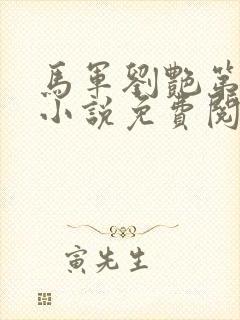 馬軍劉艷第
小說免費閱
寅先生